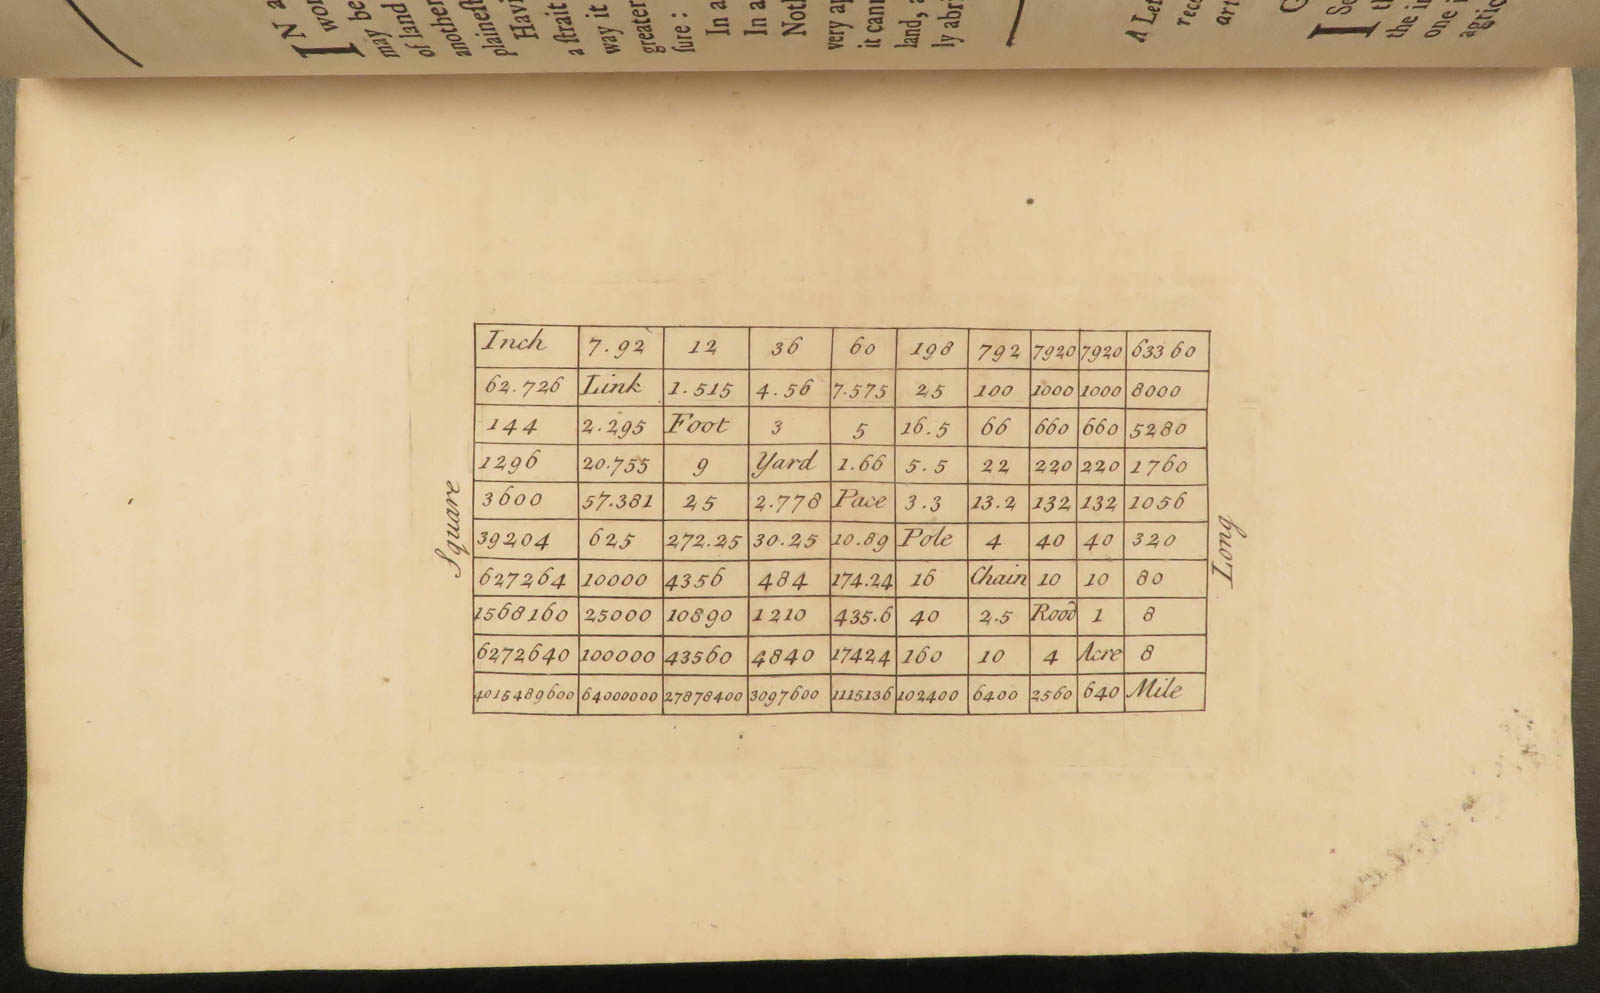 IN a
wor
may be
of land
another
plaineſt
Havi
a ſtrait
way it
greater
ſure:
In a
In a
Noth
very ap
it cann
land, a
ly abri
A Let
rece
art
G
I Se
th
the in
one i
agric
Square
Inch 7.92 12 36 60 198 792 7920 7920 63360
62.726 Link 1.515 4.56 7.575 25 100 1000 1000 8000
144 2.295 Foot 3 5 16.5 66 660 660 5280
1296 20.755 9 Yard 1.66 5.5 22 220 220 1760
3600 57.381 25 2.778 Pace 3.3 13.2 132 132 1056
39204 625 272.25 30.25 10.89 Pole 4 40 40 320
627264 10000 4356 484 174.24 16 Chain 10 10 80
1568160 25000 10890 1210 435.6 40 2.5 Rood 1 8
6272640 100000 43560 4840 17424 160 10 4 Acre 8
4015489600 64000000 27878400 3097600 1115136 102400 6400 2560 640 Mile
Long